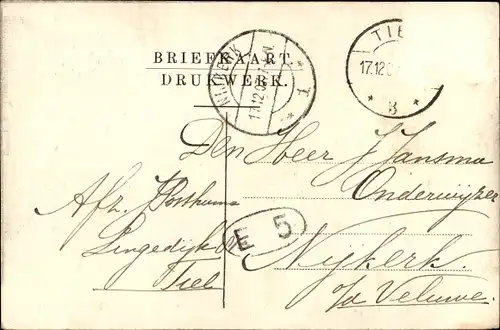 BRIEFKAART.
DRUKWERK.
NIJKERK
17.12.0
1
TIE
17.12.0
3
Den Heer J. Jansma
Onderwijzer
Nijkerk.
o/d Veluwe.
E 5
Afz. Posthuma
Lingedijk
Tiel